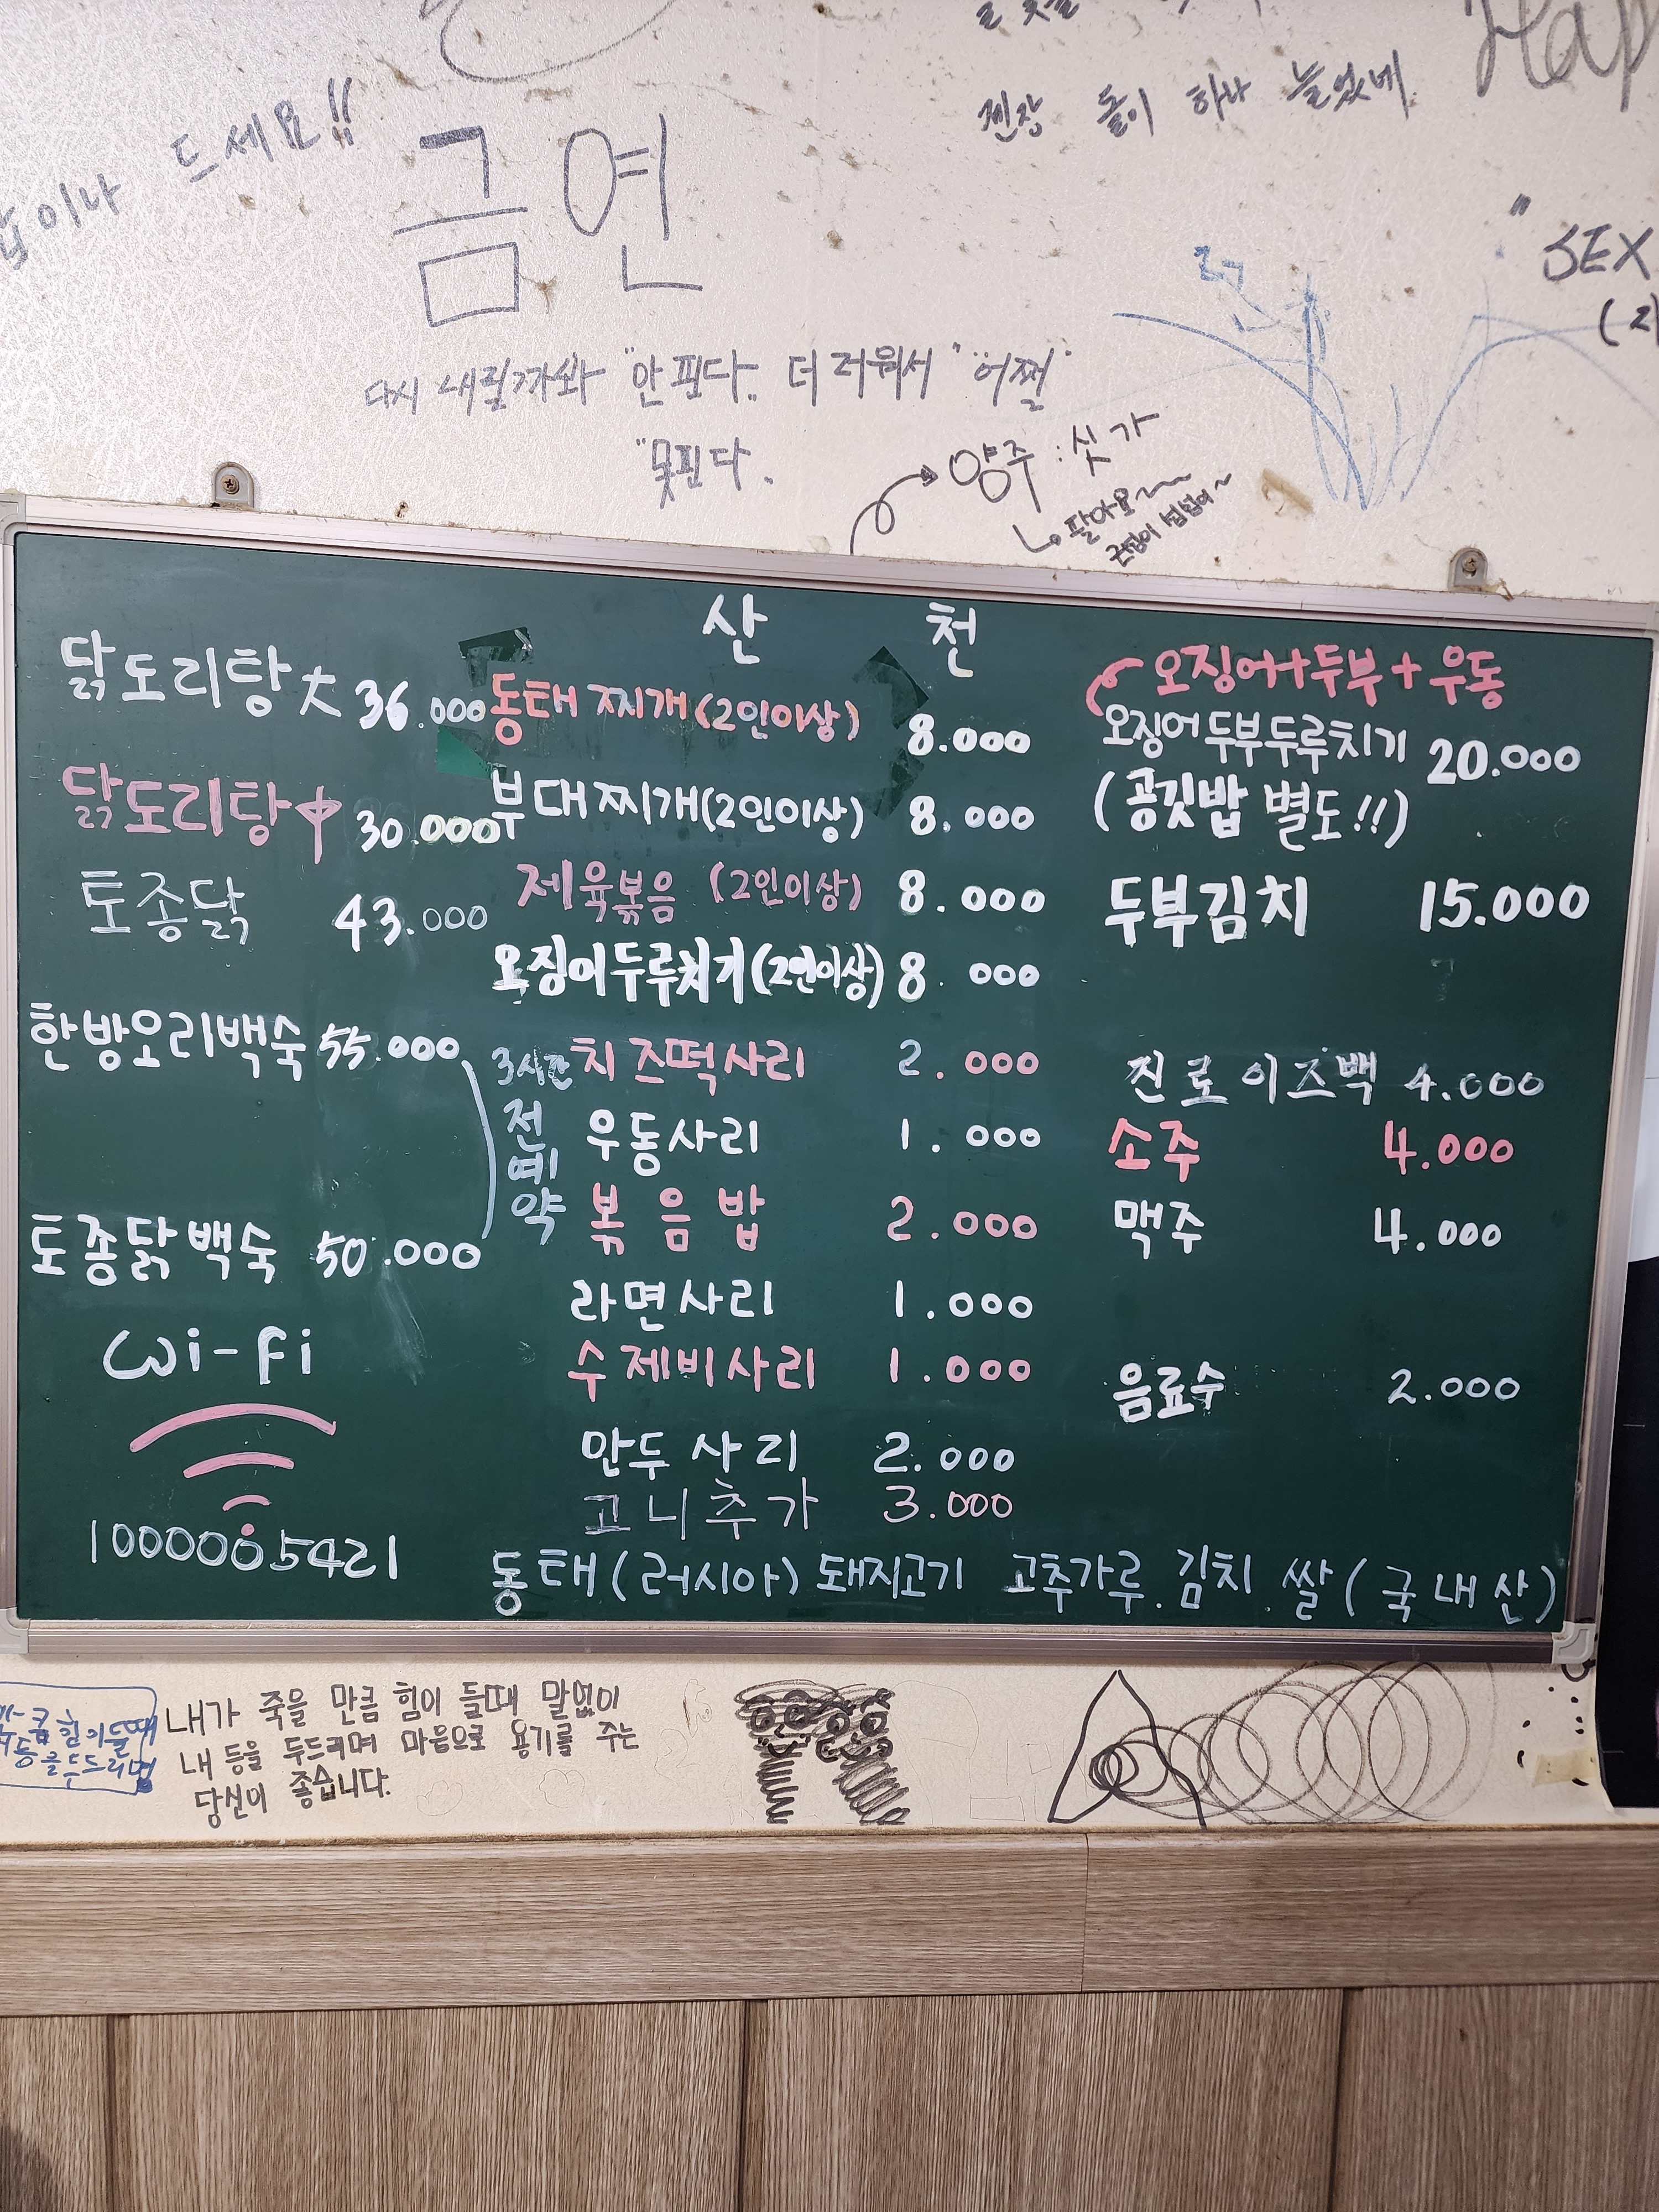 드세요!!
금연
젠장 돌이 하나 늘었네
"SEX
다시 내릴까봐 "안 핀다. 더러워서 "어쩔"
"못핀다.
양주 : 싯가
팔아요~~
산 천
닭도리탕 大 36.000
닭도리탕 中 30.000
토종닭 43.000
한방오리백숙 55.000
토종닭백숙 50.000
3시간
전
예
약
Wi-Fi
1000005421
동태찌개(2인이상) 8.000
부대찌개(2인이상) 8.000
제육볶음 (2인이상) 8.000
오징어두루치기(2인이상) 8.000
치즈떡사리 2.000
우동사리 1.000
볶음밥 2.000
라면사리 1.000
수제비사리 1.000
만두사리 2.000
고니추가 3.000
오징어+두부+우동
오징어두부두루치기 20.000
(공깃밥 별도!!)
두부김치 15.000
진로이즈백 4.000
소주 4.000
맥주 4.000
음료수 2.000
동태(러시아) 돼지고기 고추가루.김치.쌀(국내산)
내가 죽을 만큼 힘이 들때 말없이
내 등을 두드리며 마음으로 용기를 주는
당신이 좋습니다.